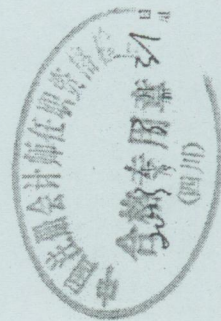 中国注册会计师任职资格检
合格专用章
(四川)